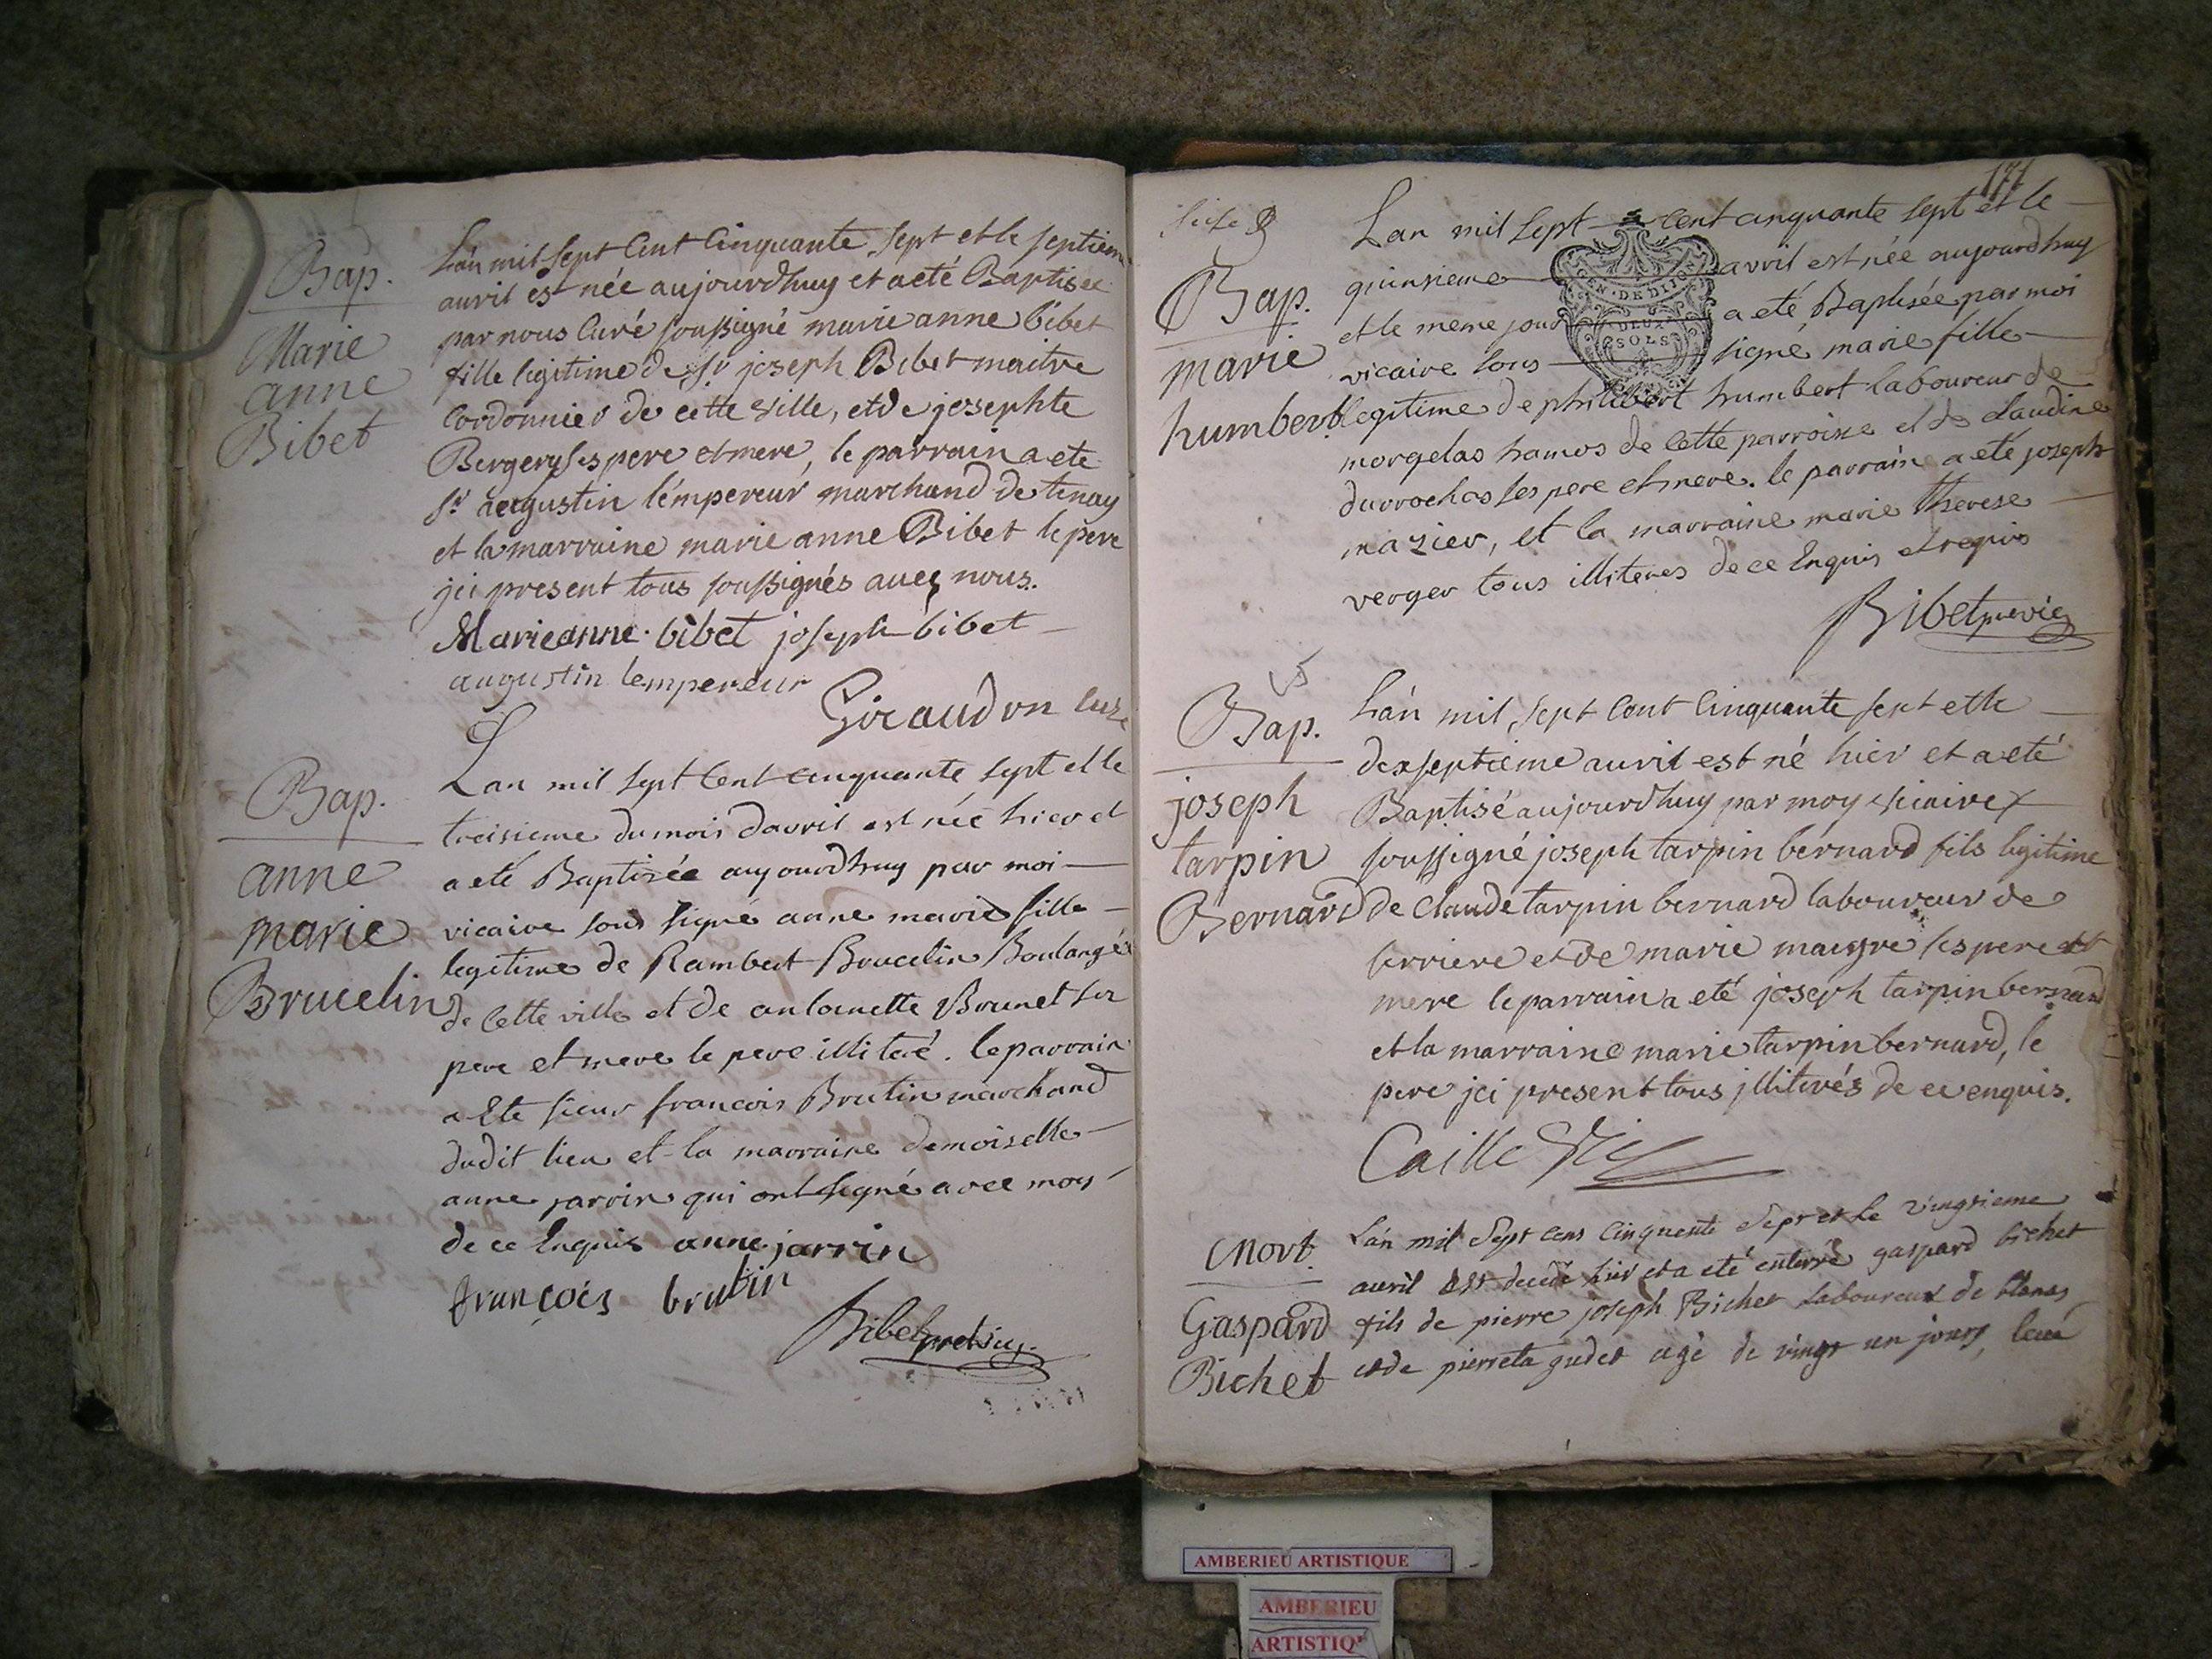 Bap.
Marie
anne
Bibet
Lán mil sept Cent Cinquante sept et le septiem
auril est née aujourdhuy et a eté Baptisée
par nous Curé soussigné marie anne bibet
fille legitime de sr joseph Bibet maitre
Cordonnier de cette ville, et de josephte
Bergery ses pere et mere, le parrain a ete
sr augustin lémpereur marchand de tenay
et la marraine marie anne Bibet le pere
jci present tous soussignés avec nous.
Marieanne bibet joseph bibet
augustin lempereur
Giraudon Curé
Bap.
anne
marie
Brucelin
Lan mil sept Cent cinquante sept et le
treisieme du mois davril est née hier et
a eté Baptisée aujourdhuy par moi
vicaire sous signé anne marie fille
legitime de Rambert Brucelin Boulangé
de cette ville et de antoinette Brunet ses
pere et mere le pere illiteré. le parrain
a Ete sieur francois Brutin marchand
dudit lieu et la marraine demoiselle
anne jarrin qui ont signé avec moy
de ce Enquis anne jarrin
françois brutin
Bibet pretvic
171
suite
Bap.
marie
humbert
Lan mil sept cent cinquante sept et le
quinsieme avril est née aujourdhuy
et le meme jour a eté Baptisée par moi
vicaire sous signé marie fille
legitime de philibert humbert laboureur de
morgelas hamos de cette parroisse et de Claudine
durrochas ses pere et mere. le parrain a eté joseph
mazier, et la marraine marie therese
verger tous illiterés de ce Enquis et requis
Bibet previc
EN.DEDIT
DEUX
SOLS
Bap.
joseph
tarpin
Bernard
Lán mil sept Cent Cinquante sept et le
dexseptieme auril est né hier et a eté
Baptisé aujourdhuy par moy viciaire
soussigné joseph tarpin bérnard fils legitime
de Claude tarpin bernard laboureur de
serriere et de marie maigre ses pere et
mere le parrain a eté joseph tarpin bernard
et la marraine marie tarpin bernard, le
pere jci present tous jlliterés de ce enquis.
Caille Vic
Mort.
Gaspard
Bichet
Lán mil Sept cens Cinquente Sept et le vingtieme
auril est decedé hier et a eté enterré gaspard bichet
fils de pierre joseph Bichet Laboureur de blanas
et de pierreta gudet agé de vingt un jours,
AMBERIEU ARTISTIQUE
AMBERIEU
ARTISTIQ